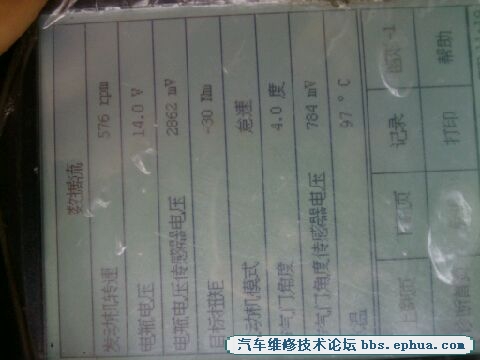 数据流
发动机转速 576 rpm
电瓶电压 14.0 V
电瓶电压传感器电压 2862 mV
目标扭矩 -30 Nm
动机模式 怠速
气门角度 4.0 度
气门角度传感器电压 784 mV
温 97 ° C
上翻页 记录
打印 帮助
汽车维修技术论坛 bbs.ephua.com